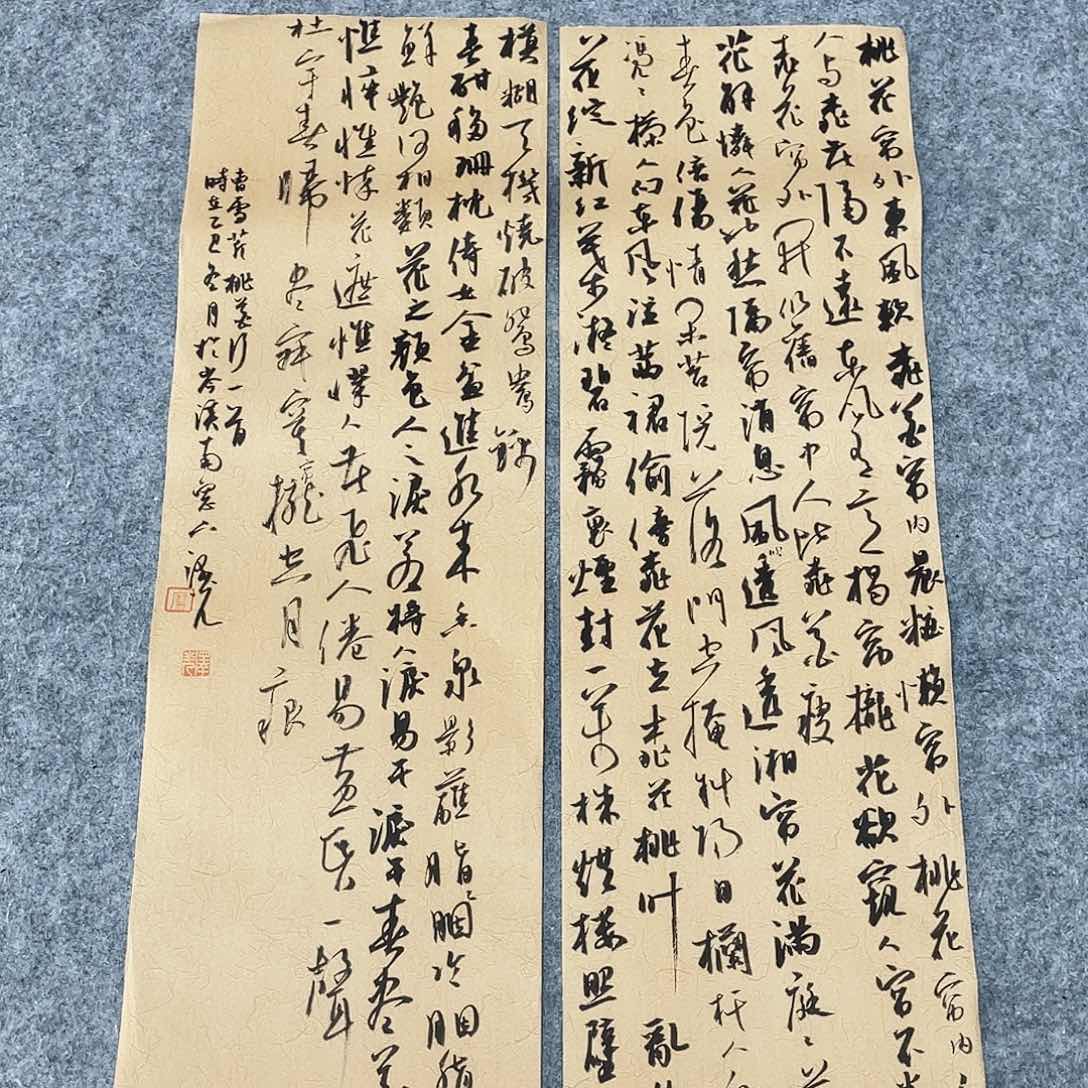 桃花帘外東風軟桃花帘内晨妝懶帘外桃花帘内
人与桃花隔不遠東風有意揭帘櫳花欲窺人帘不
桃花帘外開仍舊帘中人比桃花瘦
花解憐人花亦愁隔帘消息風吹透風透湘帘花滿庭〻
春色倍傷情閑苔院落門空掩斜陽日欄杆人
凭〻欄人向東風泣茜裙偷傍桃花立桃花桃叶亂
花绽新紅葉凝碧霧裹煙封一萬株烘樓照壁
模糊天機燒破鴛鴦錦
春酣移珊枕侍女金盆進水来香泉影蘸胭脂冷胭脂
鮮艷何相類花之顏色人之淚若將人淚易干淚干春盡花
憔悴憔悴花遮憔悴人花飛人倦易黄昏一聲
杜宇春歸盡寂寞櫳空月痕
曹雪芹桃花行一首
時在乙巳冬月於岑溪南窗下